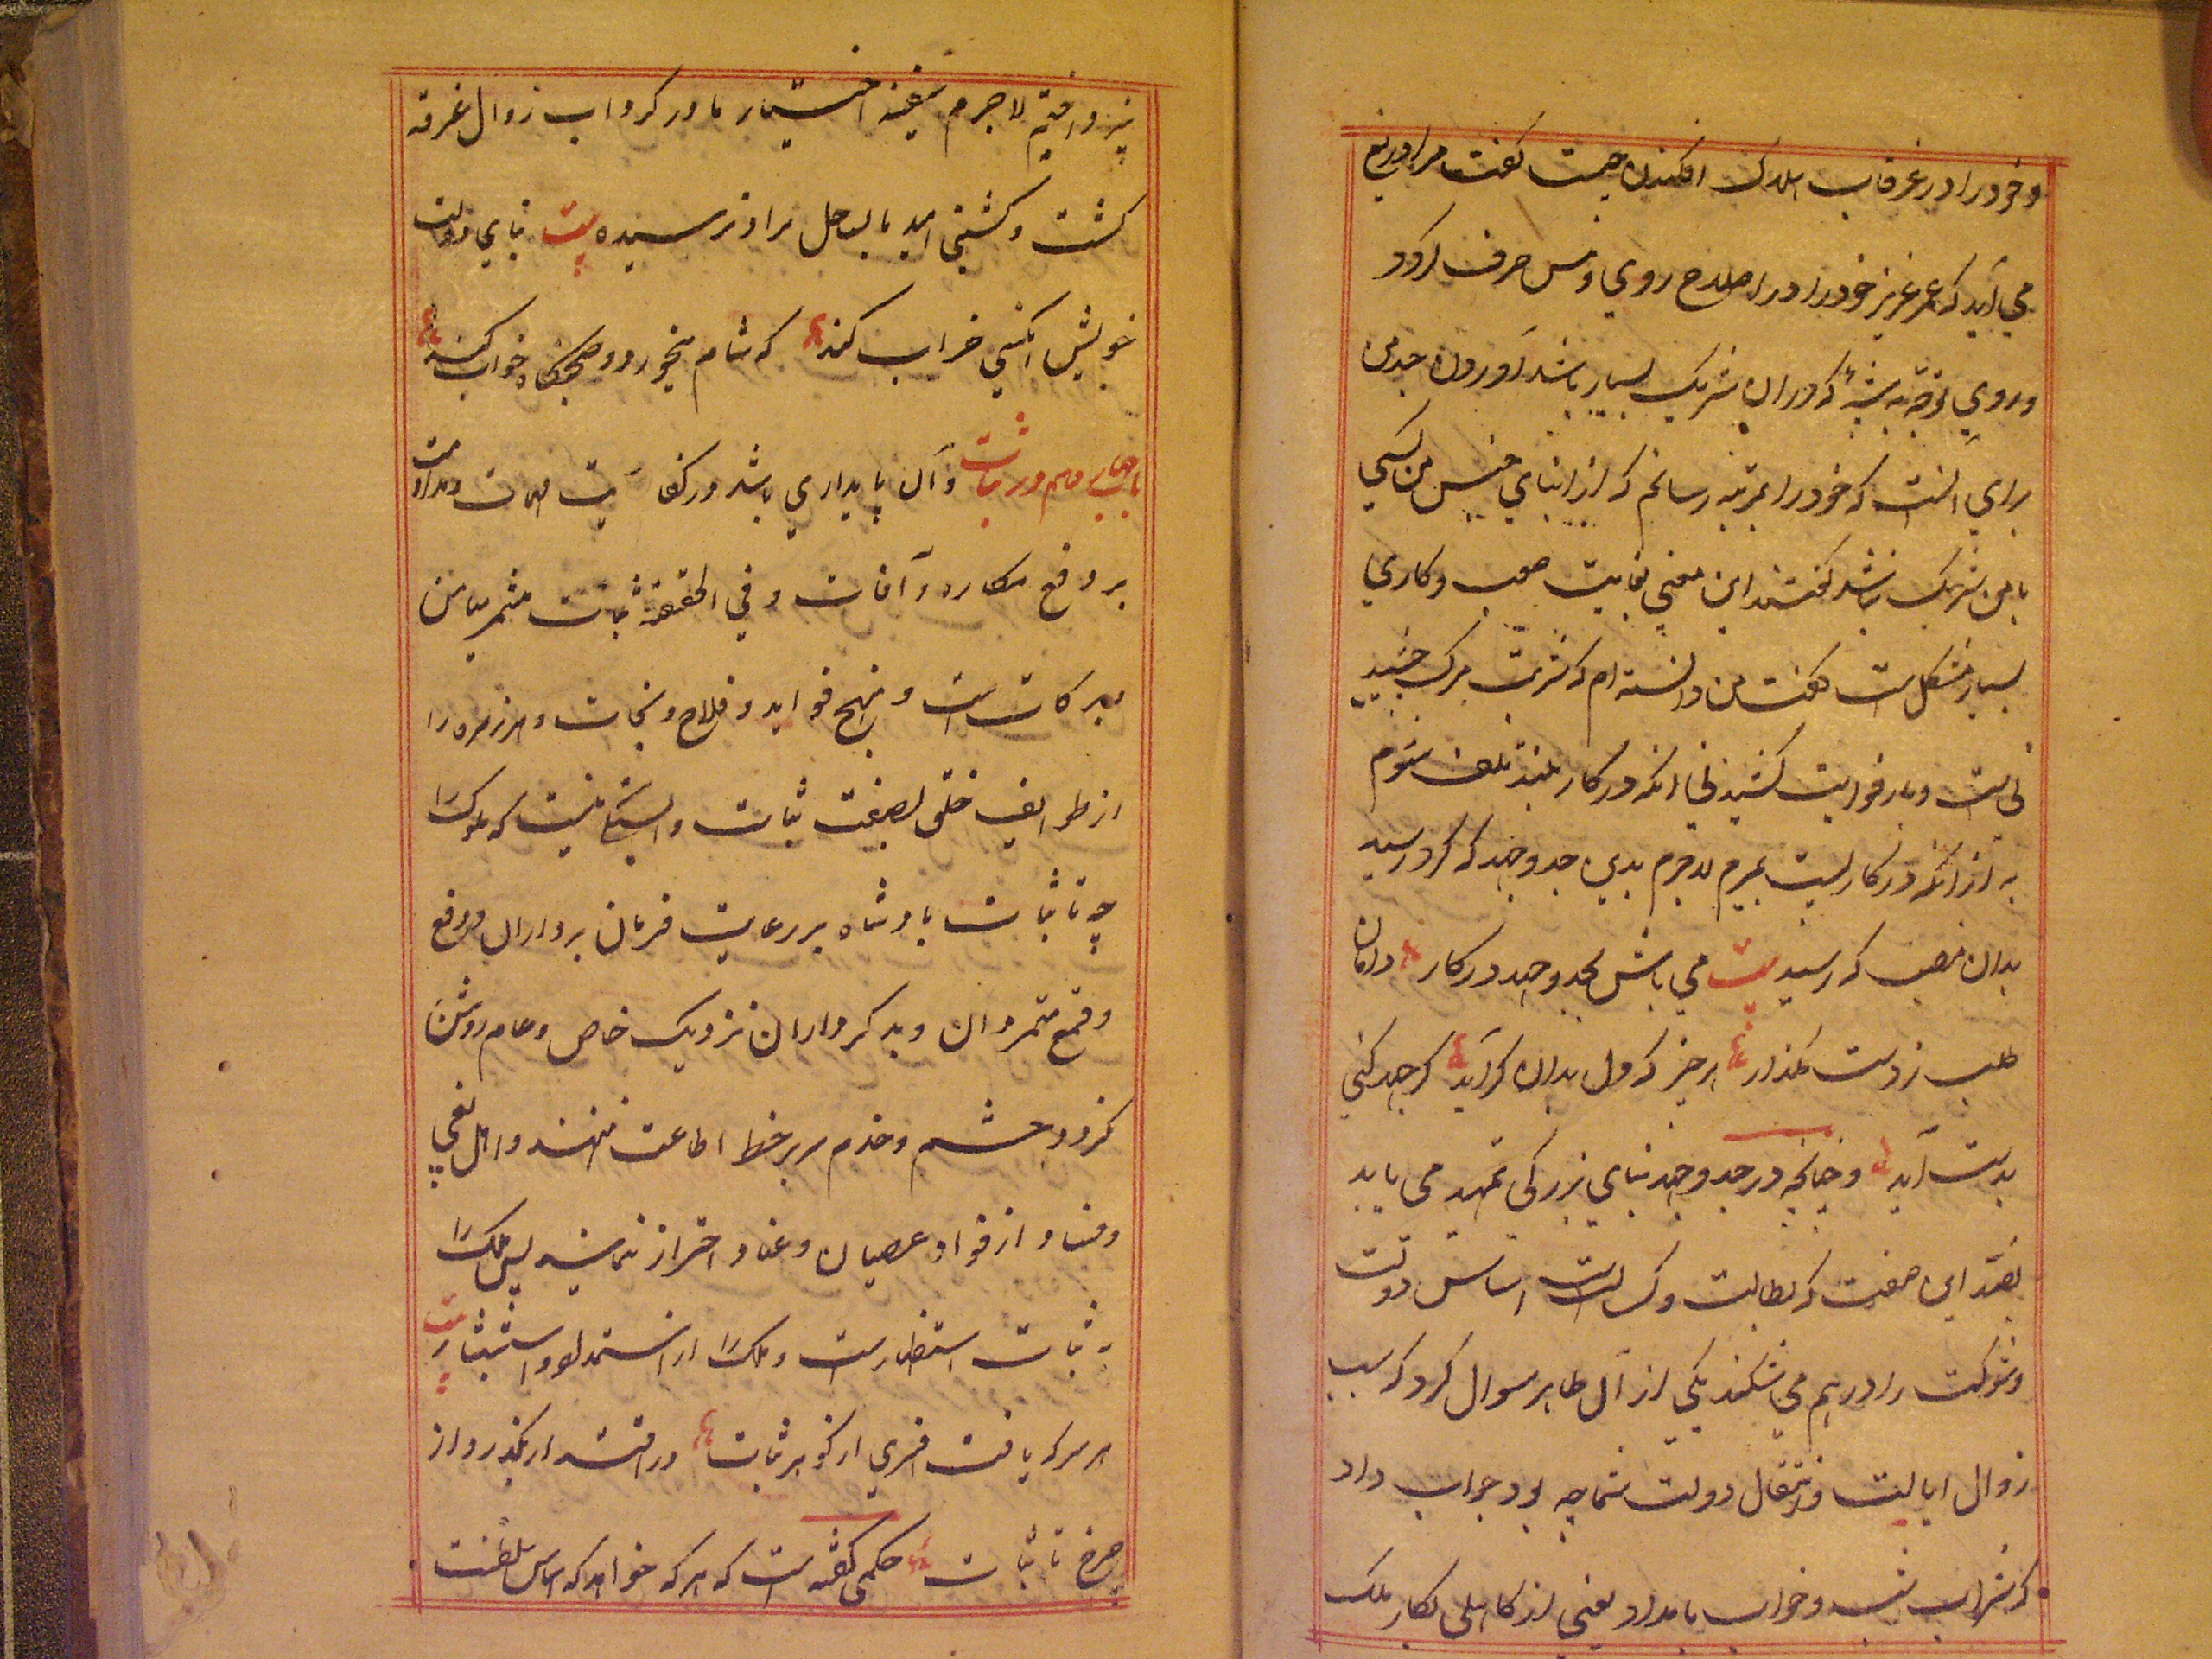 و خود را در غرقاب هلاک افکندن چیست گفت مرا دریغ
می آید که عمر عزیز خود را در اصلاح روی و مس صرف کرد
و روی توجه به پیشهٔ که در ان شریک بسیار باشد آورد و جد من
برای انست که خود را بمرتبه رسانم که از ابنای جنس من کسی
با من شریک نباشد گفتند این معنی بغایت صعب و کاری
بسیار مشکل است گفت من دانسته ام که شربت مرک چشید
نی است و بار فوایت کشیدنی انکه در کار بلند تلف شوم
به از انکه در کار پست بمیرم لاجرم بدین جد و جهد که کرد رسید
بدان منصب که رسید بیت می باش بجد و جهد در کار دامان
طلب ز دست مگذار هر چیز که دل بدان کراید گر جهد کنی
بدست آید و چنانچه در جد و جهد بنای بزرکی تمهید می یابد
بضد این صفت که بطالت و کسالت است اساس دولت
و شوکت را در هم می شکند یکی از آل طاهر سوال کرد که سبب
زوال ایالت و انتقال دولت شما چه بود جواب داد
که شراب شب و خواب بامداد یعنی از کاهلی بکار ملک
نپرداختیم لاجرم سفینهٔ اختیار ما در کرداب زوال غرقه
کشت و کشتی امید ما بساحل مراد نرسیده بیت بنای دولت
خویش انکسی خراب کند که شام میخورد و صبحکاه خواب کند
باب چهاردهم در ثبات و آن پایداری باشد در کفایت مهمات و مداومت
بر دفع مکاره و آفات و فی الحقیقة ثبات مثمر میامن
و برکات است و منهج فواید و فلاح و نجات و هر زمره را
از طوایف خلق بصفت ثبات و استکانیست که ملوک را
چه تا ثبات پادشاه بر رعایت فرمان برداران و دفع
و قمع متمردان و بدکرداران نزدیک خاص و عام روشن
نکردد حشم و خدم سر بر خط اطاعت ننهند و اهل بغی
و فساد از فواد عصیان و عناد احتراز ننمایند پس ملک را
به ثبات استظهار است و ملک را از استمداد و استبشار بیت
هر سر که یافت افسری از کوهر ثبات در اقتدار بگذرد از
چرخ تا ثبات حکمی گفته است که هر که خواهد که اساس سلطنت